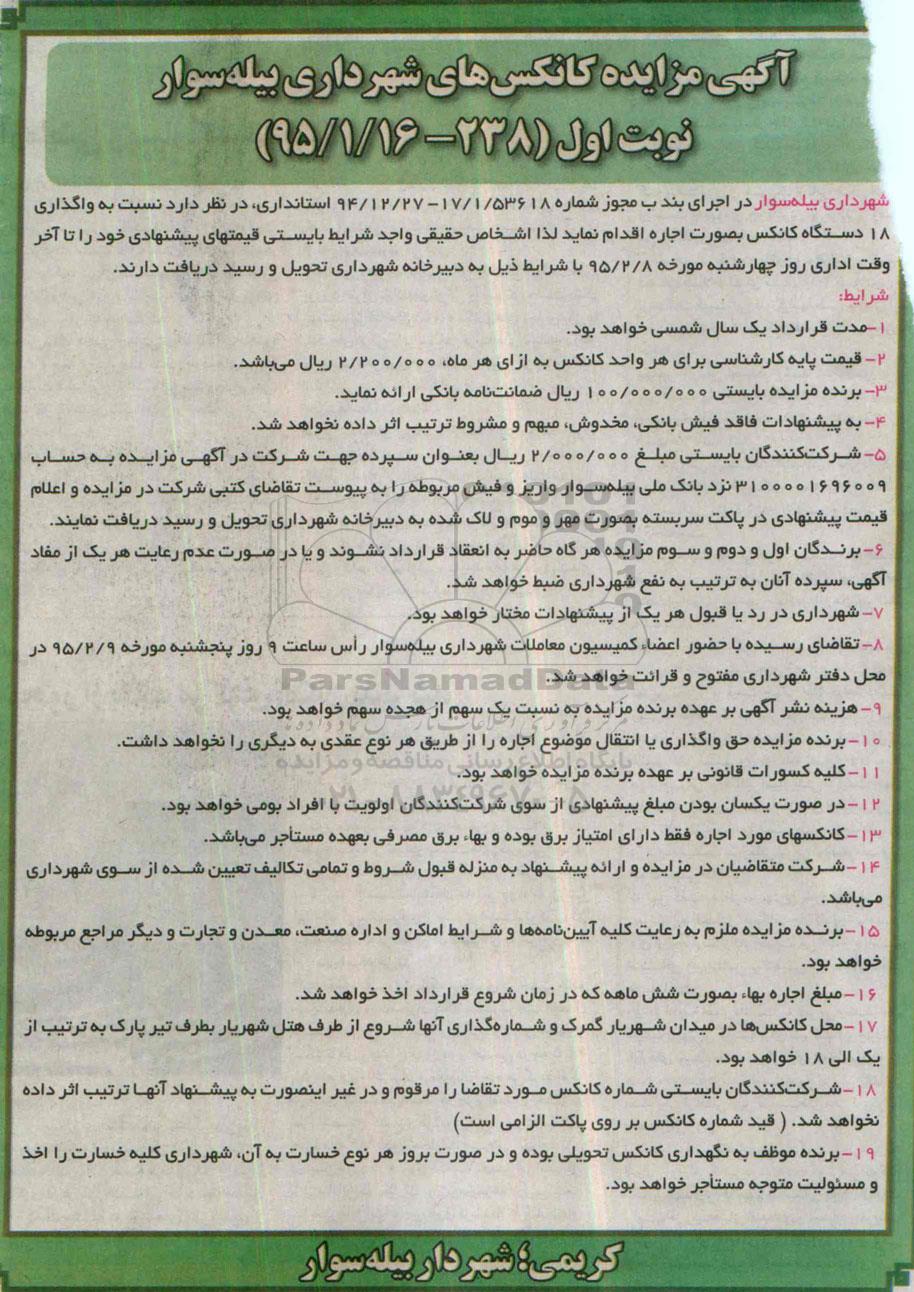 آگهی مزایده کانکس‌های شهرداری بیله‌سوار
نوبت اول (۲۳۸ – ۹۵/۱/۱۶)
شهرداری بیله‌سوار در اجرای بند ب مجوز شماره ۱۷/۱/۵۳۶۱۸- ۹۴/۱۲/۲۷ استانداری، در نظر دارد نسبت به واگذاری
۱۸ دستگاه کانکس بصورت اجاره اقدام نماید لذا اشخاص حقیقی واجد شرایط بایستی قیمتهای پیشنهادی خود را تا آخر
وقت اداری روز چهارشنبه مورخه ۹۵/۲/۸ با شرایط ذیل به دبیرخانه شهرداری تحویل و رسید دریافت دارند.
شرایط:
۱-مدت قرارداد یک سال شمسی خواهد بود.
۲- قیمت پایه کارشناسی برای هر واحد کانکس به ازای هر ماه، ۲/۲۰۰/۰۰۰ ریال می‌باشد.
۳- برنده مزایده بایستی ۱۰۰/۰۰۰/۰۰۰ ریال ضمانت‌نامه بانکی ارائه نماید.
۴- به پیشنهادات فاقد فیش بانکی، مخدوش، مبهم و مشروط ترتیب اثر داده نخواهد شد.
۵- شرکت‌کنندگان بایستی مبلغ ۲/۰۰۰/۰۰۰ ریال بعنوان سپرده جهت شرکت در آگهی مزایده به حساب
۳۱۰۰۰۰۱۶۹۶۰۰۹ نزد بانک ملی بیله‌سوار واریز و فیش مربوطه را به پیوست تقاضای کتبی شرکت در مزایده و اعلام
قیمت پیشنهادی در پاکت سربسته بصورت مهر و موم و لاک شده به دبیرخانه شهرداری تحویل و رسید دریافت نمایند.
۶- برندگان اول و دوم و سوم مزایده هر گاه حاضر به انعقاد قرارداد نشوند و یا در صورت عدم رعایت هر یک از مفاد
آگهی، سپرده آنان به ترتیب به نفع شهرداری ضبط خواهد شد.
۷- شهرداری در رد یا قبول هر یک از پیشنهادات مختار خواهد بود.
۸- تقاضای رسیده با حضور اعضاء کمیسیون معاملات شهرداری بیله‌سوار رأس ساعت ۹ روز پنجشنبه مورخه ۹۵/۲/۹ در
محل دفتر شهرداری مفتوح و قرائت خواهد شد.
ParsNamadData
۹- هزینه نشر آگهی بر عهده برنده مزایده به نسبت یک سهم از هجده سهم خواهد بود.
۱۰- برنده مزایده حق واگذاری یا انتقال موضوع اجاره را از طریق هر نوع عقدی به دیگری را نخواهد داشت.
پایگاه اطلاع رسانی مناقصه و مزایده
۱۱- کلیه کسورات قانونی بر عهده برنده مزایده خواهد بود.
۱۲- در صورت یکسان بودن مبلغ پیشنهادی از سوی شرکت‌کنندگان اولویت با افراد بومی خواهد بود.
۱۳- کانکسهای مورد اجاره فقط دارای امتیاز برق بوده و بهاء برق مصرفی بعهده مستأجر می‌باشد.
۱۴- شرکت متقاضیان در مزایده و ارائه پیشنهاد به منزله قبول شروط و تمامی تکالیف تعیین شده از سوی شهرداری
می‌باشد.
۱۵- برنده مزایده ملزم به رعایت کلیه آیین‌نامه‌ها و شرایط اماکن و اداره صنعت، معدن و تجارت و دیگر مراجع مربوطه
خواهد بود.
۱۶- مبلغ اجاره بهاء بصورت شش ماهه که در زمان شروع قرارداد اخذ خواهد شد.
۱۷- محل کانکس‌ها در میدان شهریار گمرک و شماره‌گذاری آنها شروع از طرف هتل شهریار بطرف تیر پارک به ترتیب از
یک الی ۱۸ خواهد بود.
۱۸- شرکت‌کنندگان بایستی شماره کانکس مورد تقاضا را مرقوم و در غیر اینصورت به پیشنهاد آنها ترتیب اثر داده
نخواهد شد. ( قید شماره کانکس بر روی پاکت الزامی است)
۱۹- برنده موظف به نگهداری کانکس تحویلی بوده و در صورت بروز هر نوع خسارت به آن، شهرداری کلیه خسارت را اخذ
و مسئولیت متوجه مستأجر خواهد بود.
کریمی؛ شهردار بیله‌سوار